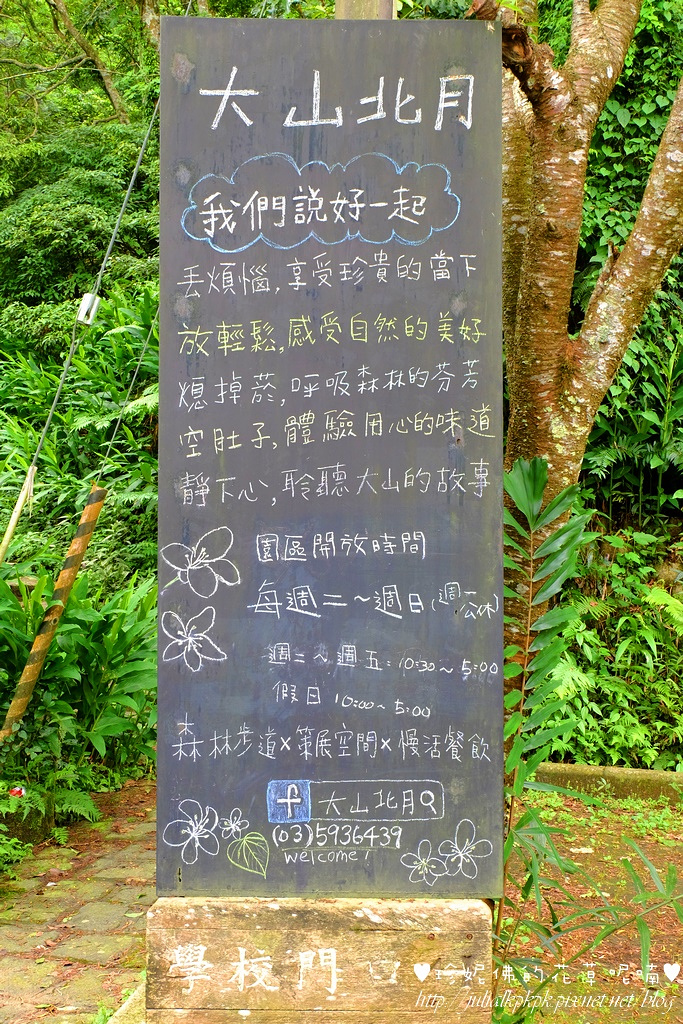 大山北月
我們說好一起
丟煩惱,享受珍貴的當下
放輕鬆,感受自然的美好
熄掉菸,呼吸森林的芬芳
空肚子,體驗用心的味道
靜下心,聆聽大山的故事
園區開放時間
每週二～週日(週一公休)
週二～週五:10:30～5:00
假日 10:00～5:00
森林步道×策展空間×慢活餐飲
f 大山北月
(03)5936439
welcome!
學校門口
♥珍妮佛的花草呢喃♥